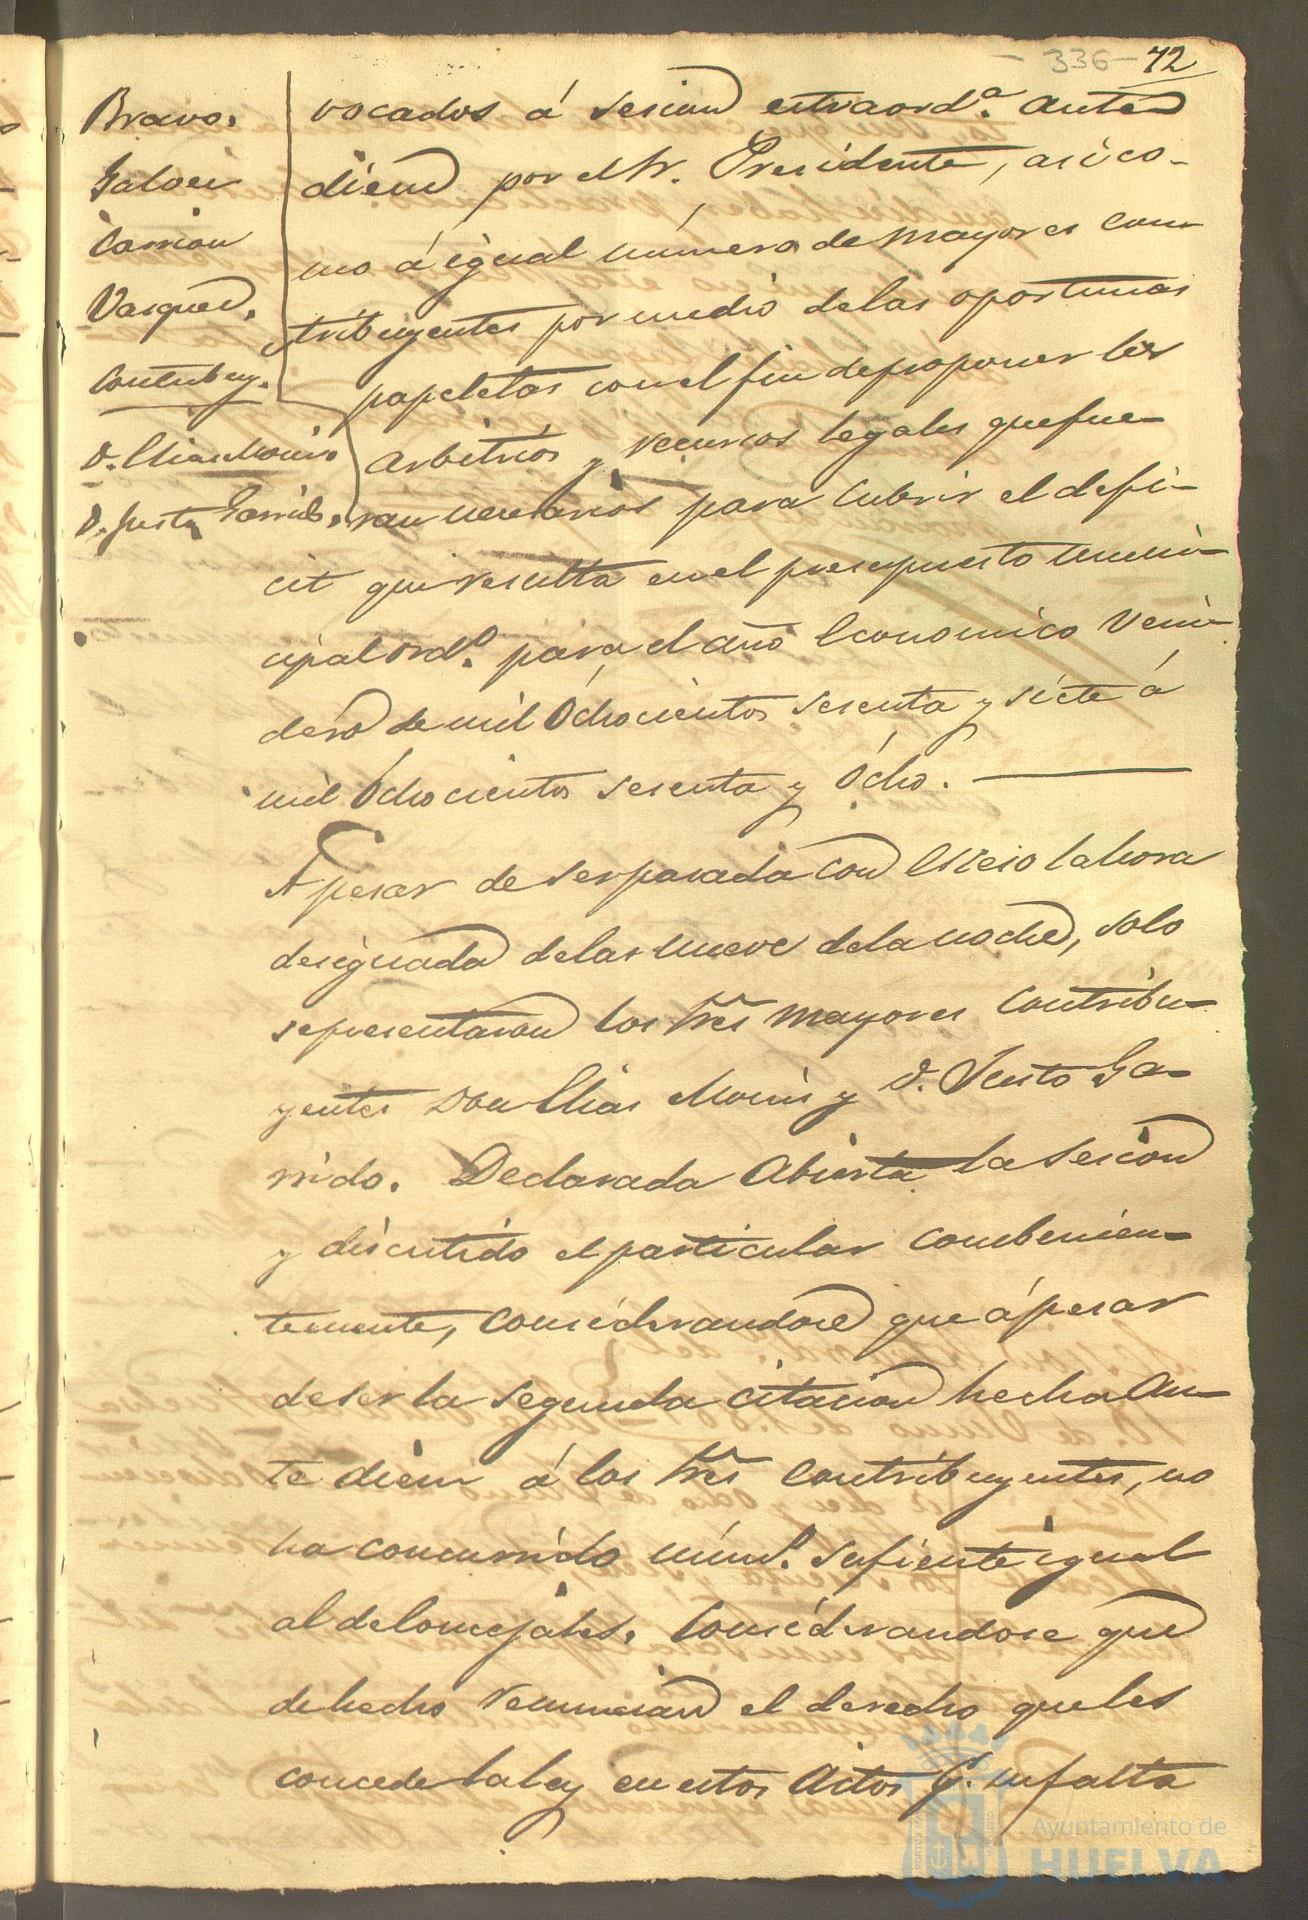 - 336 - 72
Bravo.
Galvei
Carrion
Vasquez.
Contubey.
D. Elias Monis
D. Justo Garrido.
vocados á sesion extraordª. ante
diem por el Sr. Presidente, asi co-
mo á igual número de mayores con-
tribuyentes por medio de las oportunas
papeletas con el fin de proponer los
arbitrios y recursos legales que fue-
ran necesarios para cubrir el defi-
cit que resulta en el presupuesto muni-
cipal ordº. para el año Economico veni-
dero de mil Ochocientos sesenta y siete á
mil Ochocientos sesenta y Ocho.
Apesar de ser pasada con exceso la hora
designada de las nueve de la noche, solo
se presentaron los Sres mayores contribu-
yentes Don Elias Monis y D. Justo Ga-
rrido. Declarada Abierta la Sesion
y discutido el particular combenien-
temente, considerandose que á pesar
de ser la segunda citacion hecha An-
te diem á los Sres Contribuyentes, no
ha concurrido númº. sufiente igual
al de Concejales. Considerandose que
de hecho renuncian el derecho que les
concede la ley en estos Actos q. su falta
Ayuntamiento de
HUELVA